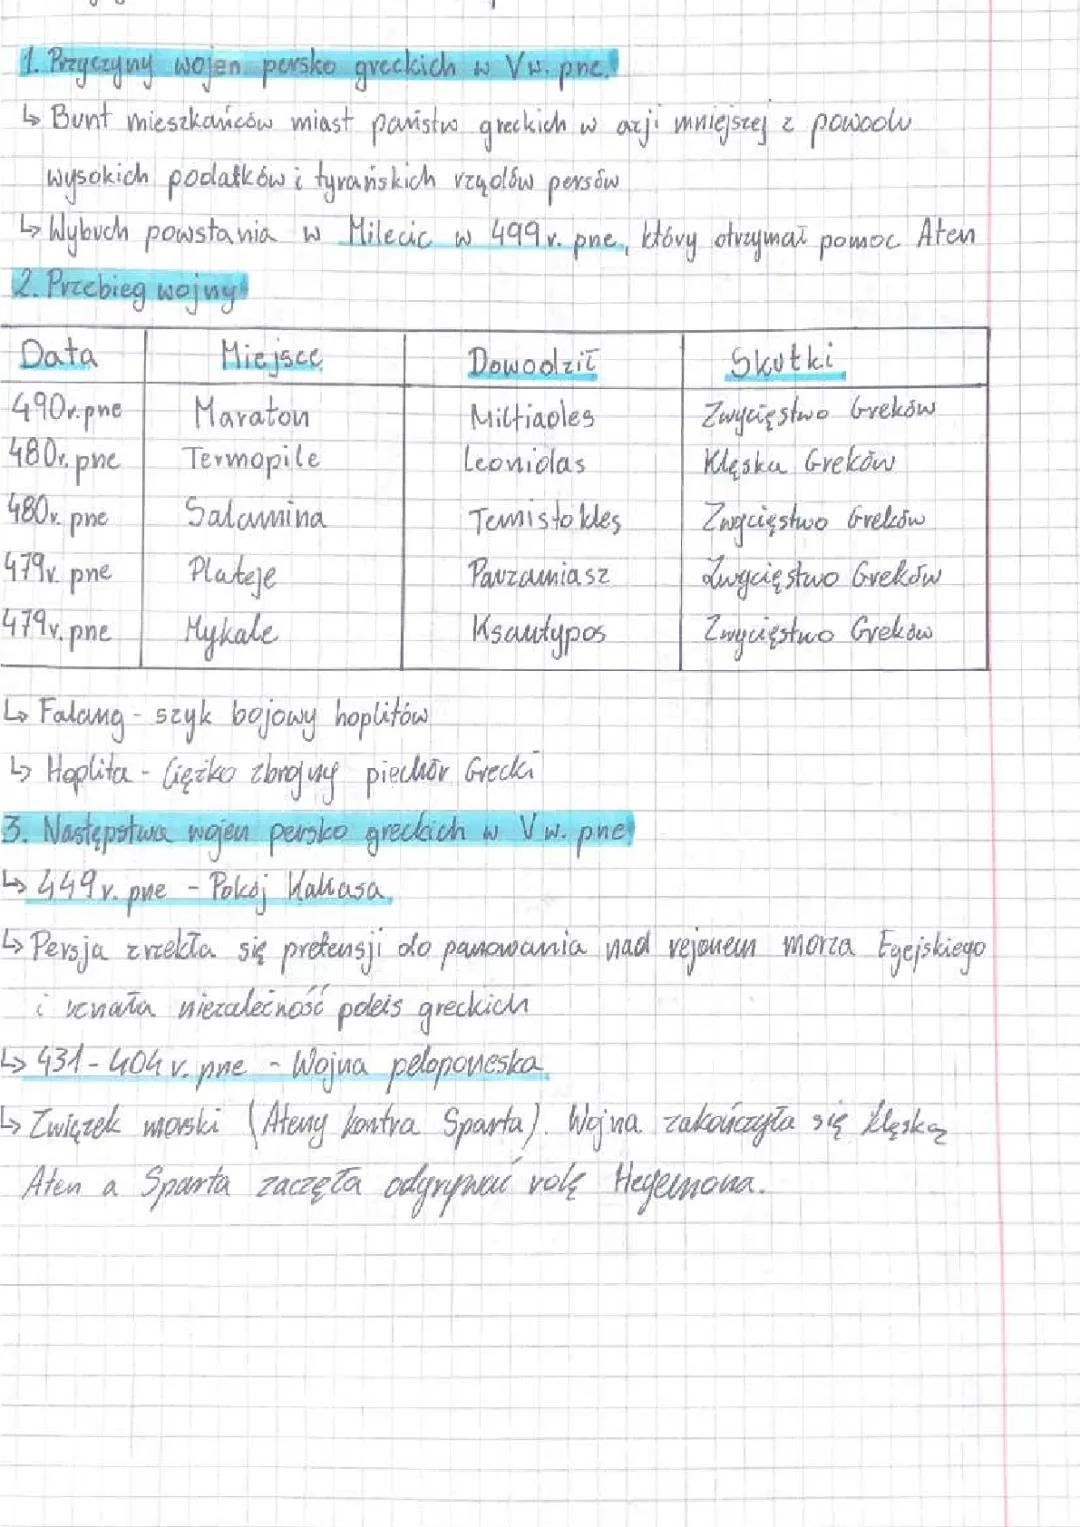 1. Przyczyny wojen persko greckich w V w. pne.
↳ Bunt mieszkańców miast państw greckich w azji mniejszej z powodu
wysokich podatków i tyrańskich rządów persów
↳ Wybuch powstania w Milecie w 499 r. pne, który otrzymał pomoc Aten
2. Przebieg wojny
Data Miejsce Dowodził Skutki
490 r. pne Maraton Miltiades Zwycięstwo Greków
480 r. pne Termopile Leonidas Klęska Greków
480 r. pne Salamina Temistokles Zwycięstwo Greków
479 r. pne Plateje Pauzaniasz Zwycięstwo Greków
479 r. pne Mykale Ksantypos Zwycięstwo Greków
↳ Falang - szyk bojowy hoplitów
↳ Hoplita - Ciężko zbrojny piechór Grecki
3. Następstwa wojen persko greckich w V w. pne
↳ 449 r. pne - Pokój Kaliasa
↳ Persja zrzekła się pretensji do panowania nad rejonem morza Egejskiego
i uznała niezależność poleis greckich
↳ 431-404 r. pne - Wojna peloponeska
↳ Związek morski (Ateny kontra Sparta). Wojna zakończyła się klęską
Aten a Sparta zaczęła odgrywać rolę Hegemona.